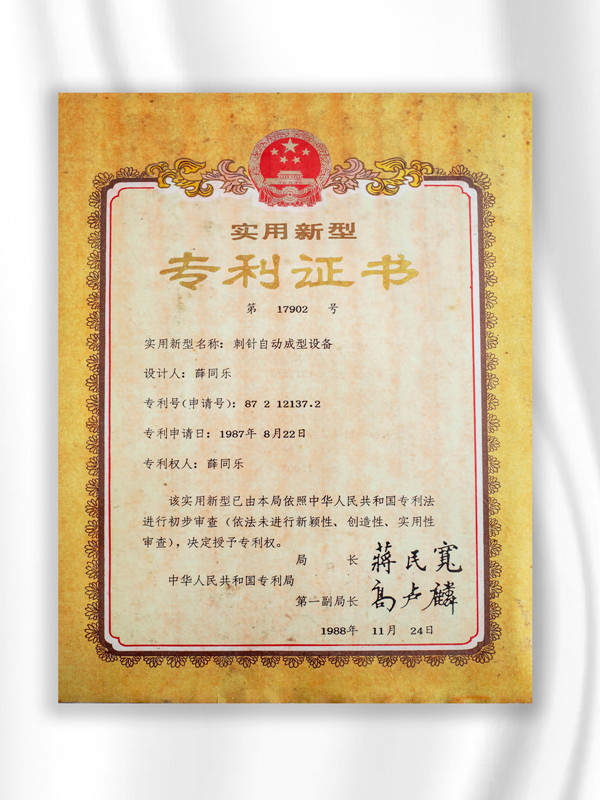 实用新型
专利证书
第 17902 号
实用新型名称：刺针自动成型设备
设计人：薛同乐
专利号(申请号)：87 2 12137.2
专利申请日：1987年 8月22日
专利权人：薛同乐
该实用新型已由本局依照中华人民共和国专利法
进行初步审查（依法未进行新颖性、创造性、实用性
审查），决定授予专利权。
局 长 蔣民寬
中华人民共和国专利局
第一副局长 高卢麟
1988年 11月 24日